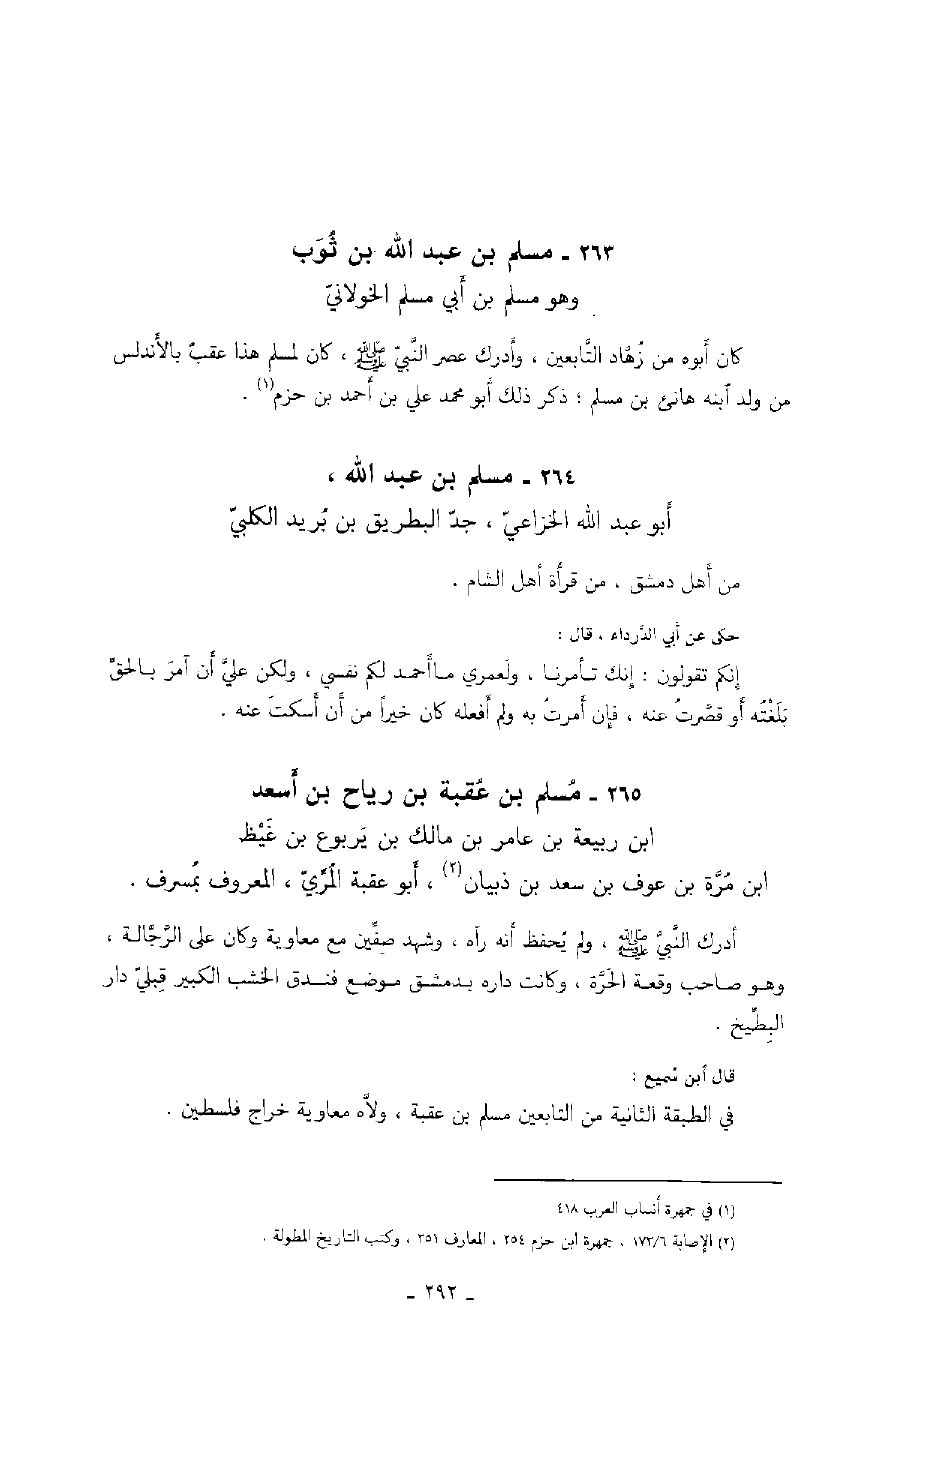 ٢٦٣ ـ مسلم بن عبد الله بن ثُوَب
وهو مسلم بن أبي مسلم الخولانيّ
كان أبوه من زُهَّاد التَّابعين ، وأدرك عصر النَّبيّ ﷺ ، كان لمسلم هذا عقبٌ بالأندلس
من ولد أبنه هانئ بن مسلم ؛ ذكر ذلك أبو محمد علي بن أحمد بن حزم(١) .
٢٦٤ ـ مسلم بن عبد الله ،
أبو عبد الله الخزاعيّ ، جدّ البطريق بن بُريد الكلبيّ
من أهل دمشق ، من قرأة أهل الشام .
حكى عن أبي الدَّرداء ، قال :
إنكم تقولون : إنك تأمرنا ، ولَعمري ماأحمد لكم نفسي ، ولكن عليَّ أن آمرَ بالحقِّ
بَلَغْتُه أو قصَّرتُ عنه ، فإن أمرتُ به ولم أفعله كان خيراً من أن أسكتَ عنه .
٢٦٥ ـ مُسلم بن عُقبة بن رياح بن أسعد
ابن ربيعة بن عامر بن مالك بن يَربوع بن غَيْظ
ابن مُرَّة بن عوف بن سعد بن ذبيان(٢) ، أبو عقبة المُرِّيّ ، المعروف بمُسرف .
أدرك النَّبيَّ ﷺ ، ولم يُحفظ أنه رآه ، وشهد صفِّين مع معاوية وكان على الرَّجَّالة ،
وهو صاحب وقعة الحَرَّة ، وكانت داره بدمشق موضع فندق الخشب الكبير قِبليّ دار
البِطِّيخ .
قال أبن سُميع :
في الطبقة الثانية من التابعين مسلم بن عقبة ، ولاَّه معاوية خراج فلسطين .
(١) في جمهرة أنساب العرب ٤١٨
(٢) الإصابة ١٧٣/٦ ، جمهرة ابن حزم ٢٥٤ ، المعارف ٣٥١ ، وكتب التاريخ المطولة .
ـ ٢٩٢ ـ